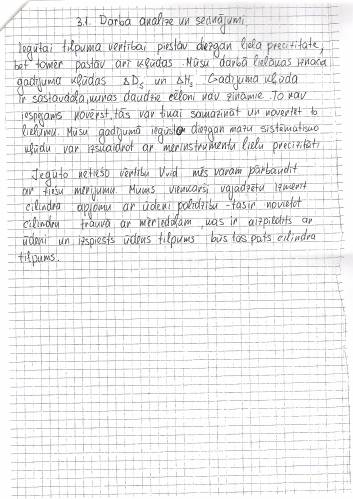 3.1. Darba analīze un secinājumi
Iegūtai tilpuma vērtībai piestāv diezgan liela precizitāte,
bet tomēr pastāv arī kļūdas. Mūsu darbā lielākas iznāca
gadījuma kļūdas ΔDs un ΔHs. Gadījuma kļūda
ir sastāvdaļa, kuras daudzie cēloņi nav zināmie. To nav
iespējams novērst, tās var tikai samazināt un novērtēt to
lielumu. Mūsu gadījumā iegūsto diezgan mazu sistemātisko
kļūdu var izskaidrot ar mērinstrumentu lielu precizitāti
Iegūto netiešo vērtību Vvid mēs varam pārbaudīt
ar tiešu mērījumu. Mums vienkārši vajadzētu izmērīt
cilindra apjomu ar ūdeni palīdzību - tas ir novietot
cilindru traukā ar mēriedaļām kas ir aizpildīts ar
ūdeni un izspiests ūdens tilpums būs tas pats cilindra
tilpums.